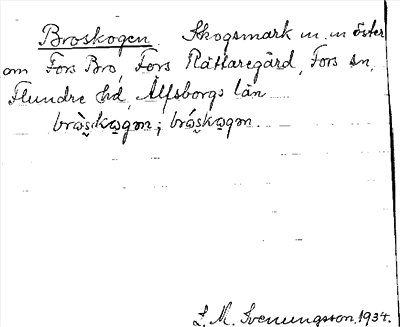 Broskogen Skogsmark m.m öster
om Fors Bro, Fors Rättaregård, Fors sn,
Flundre hd, Älfsborgs län
brὼs̬kωgən; brώs̬kωgən.
L. M. Svenungsson, 1934.